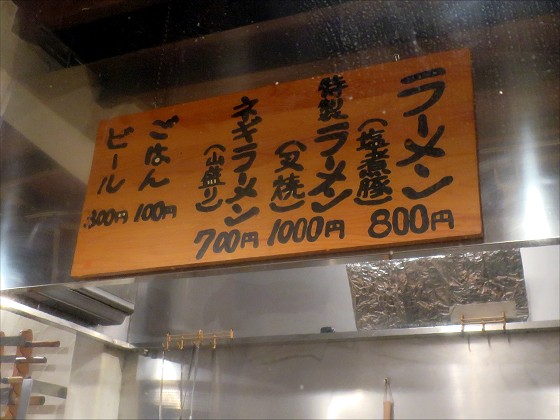 ラーメン
(塩煮豚)
800円
特製ラーメン
(叉焼)
1000円
ネギラーメン
(山盛り)
700円
ごはん
100円
ビール
300円